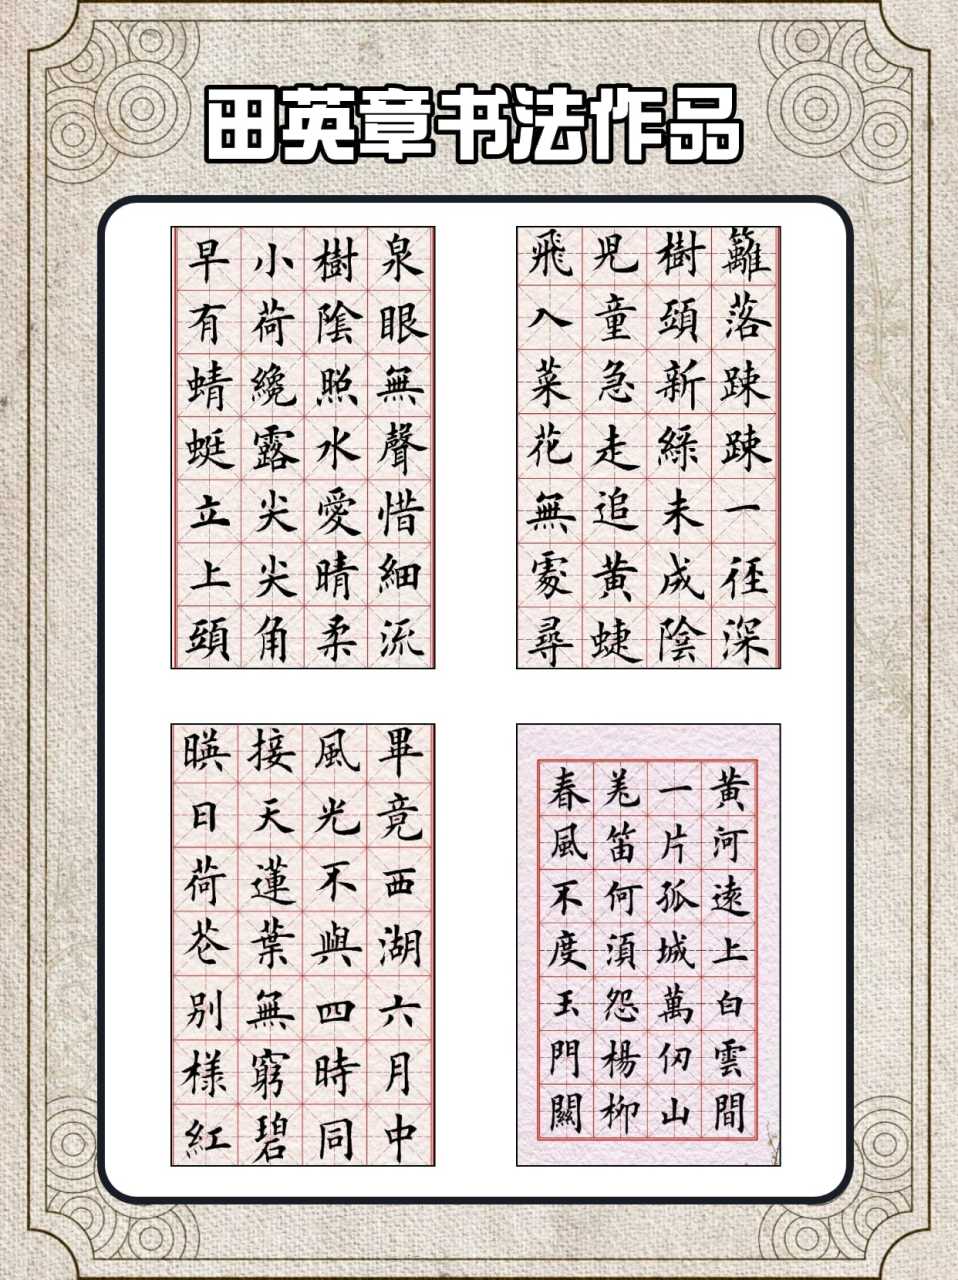 田英章书法作品
泉眼無聲惜細流
樹陰照水愛晴柔
小荷纔露尖尖角
早有蜻蜓立上頭
籬落踈踈一徑深
樹頭新綠未成陰
兒童急走追黃蜨
飛入菜花無處尋
畢竟西湖六月中
風光不與四時同
接天蓮葉無窮碧
暎日荷花别樣紅
黃河遠上白雲間
一片孤城萬仞山
羌笛何須怨楊柳
春風不度玉門關